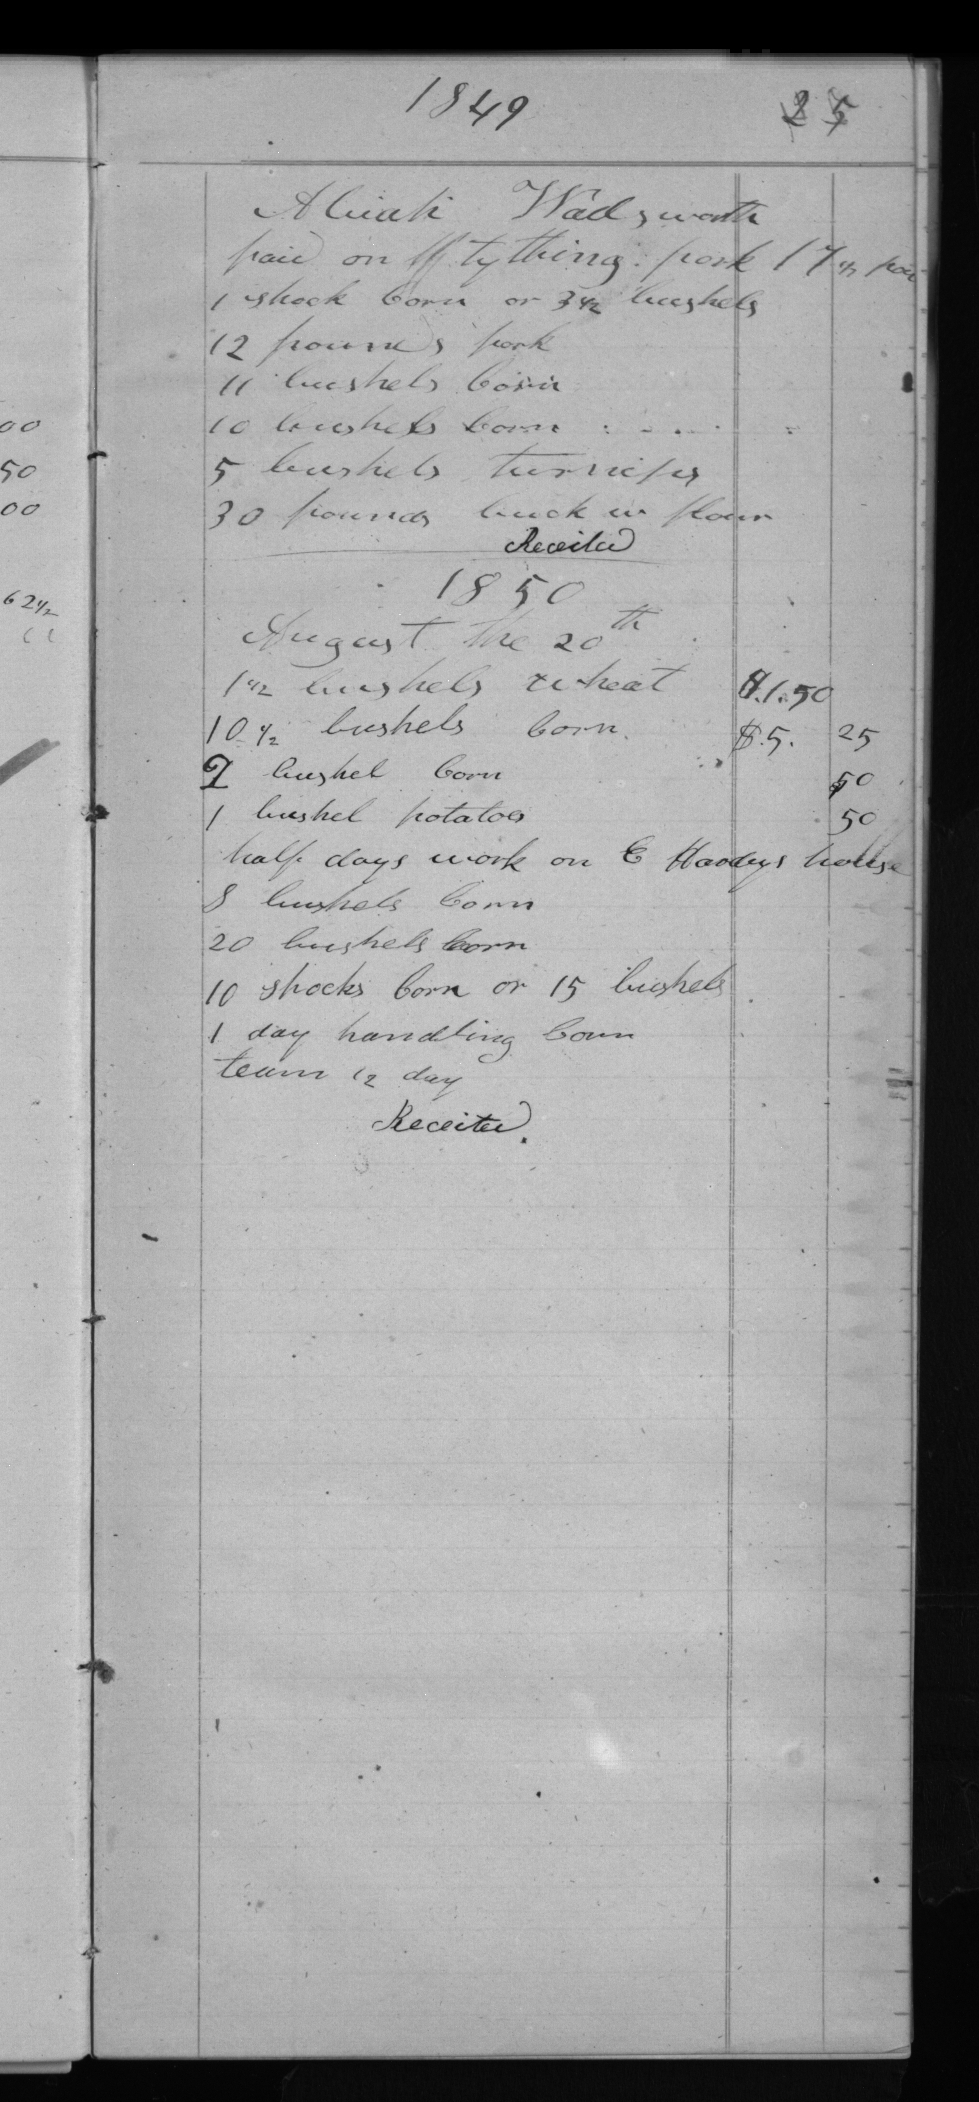 00
50
00
62 1/2
1849 25
Abiah Wadsworth
paid on tything pork 17 1/2 pou
1 shock Corn or 3 1/2 bushels
12 pounds pork
11 bushels Corn
10 bushels Corn
5 bushels turnieps
30 pounds buck w flour
Receited
1850
August the 20th
1 1/2 bushels wheat $.1.50
10 1/2 bushels Corn. $.5. 25
bushel Corn 50
1 bushel potatoes 50
half days work on E Hardeys house
8 bushels Corn
20 bushels Corn
10 shocks Corn or 15 bushels
1 day handling Corn
team 1/2 day
Receited.